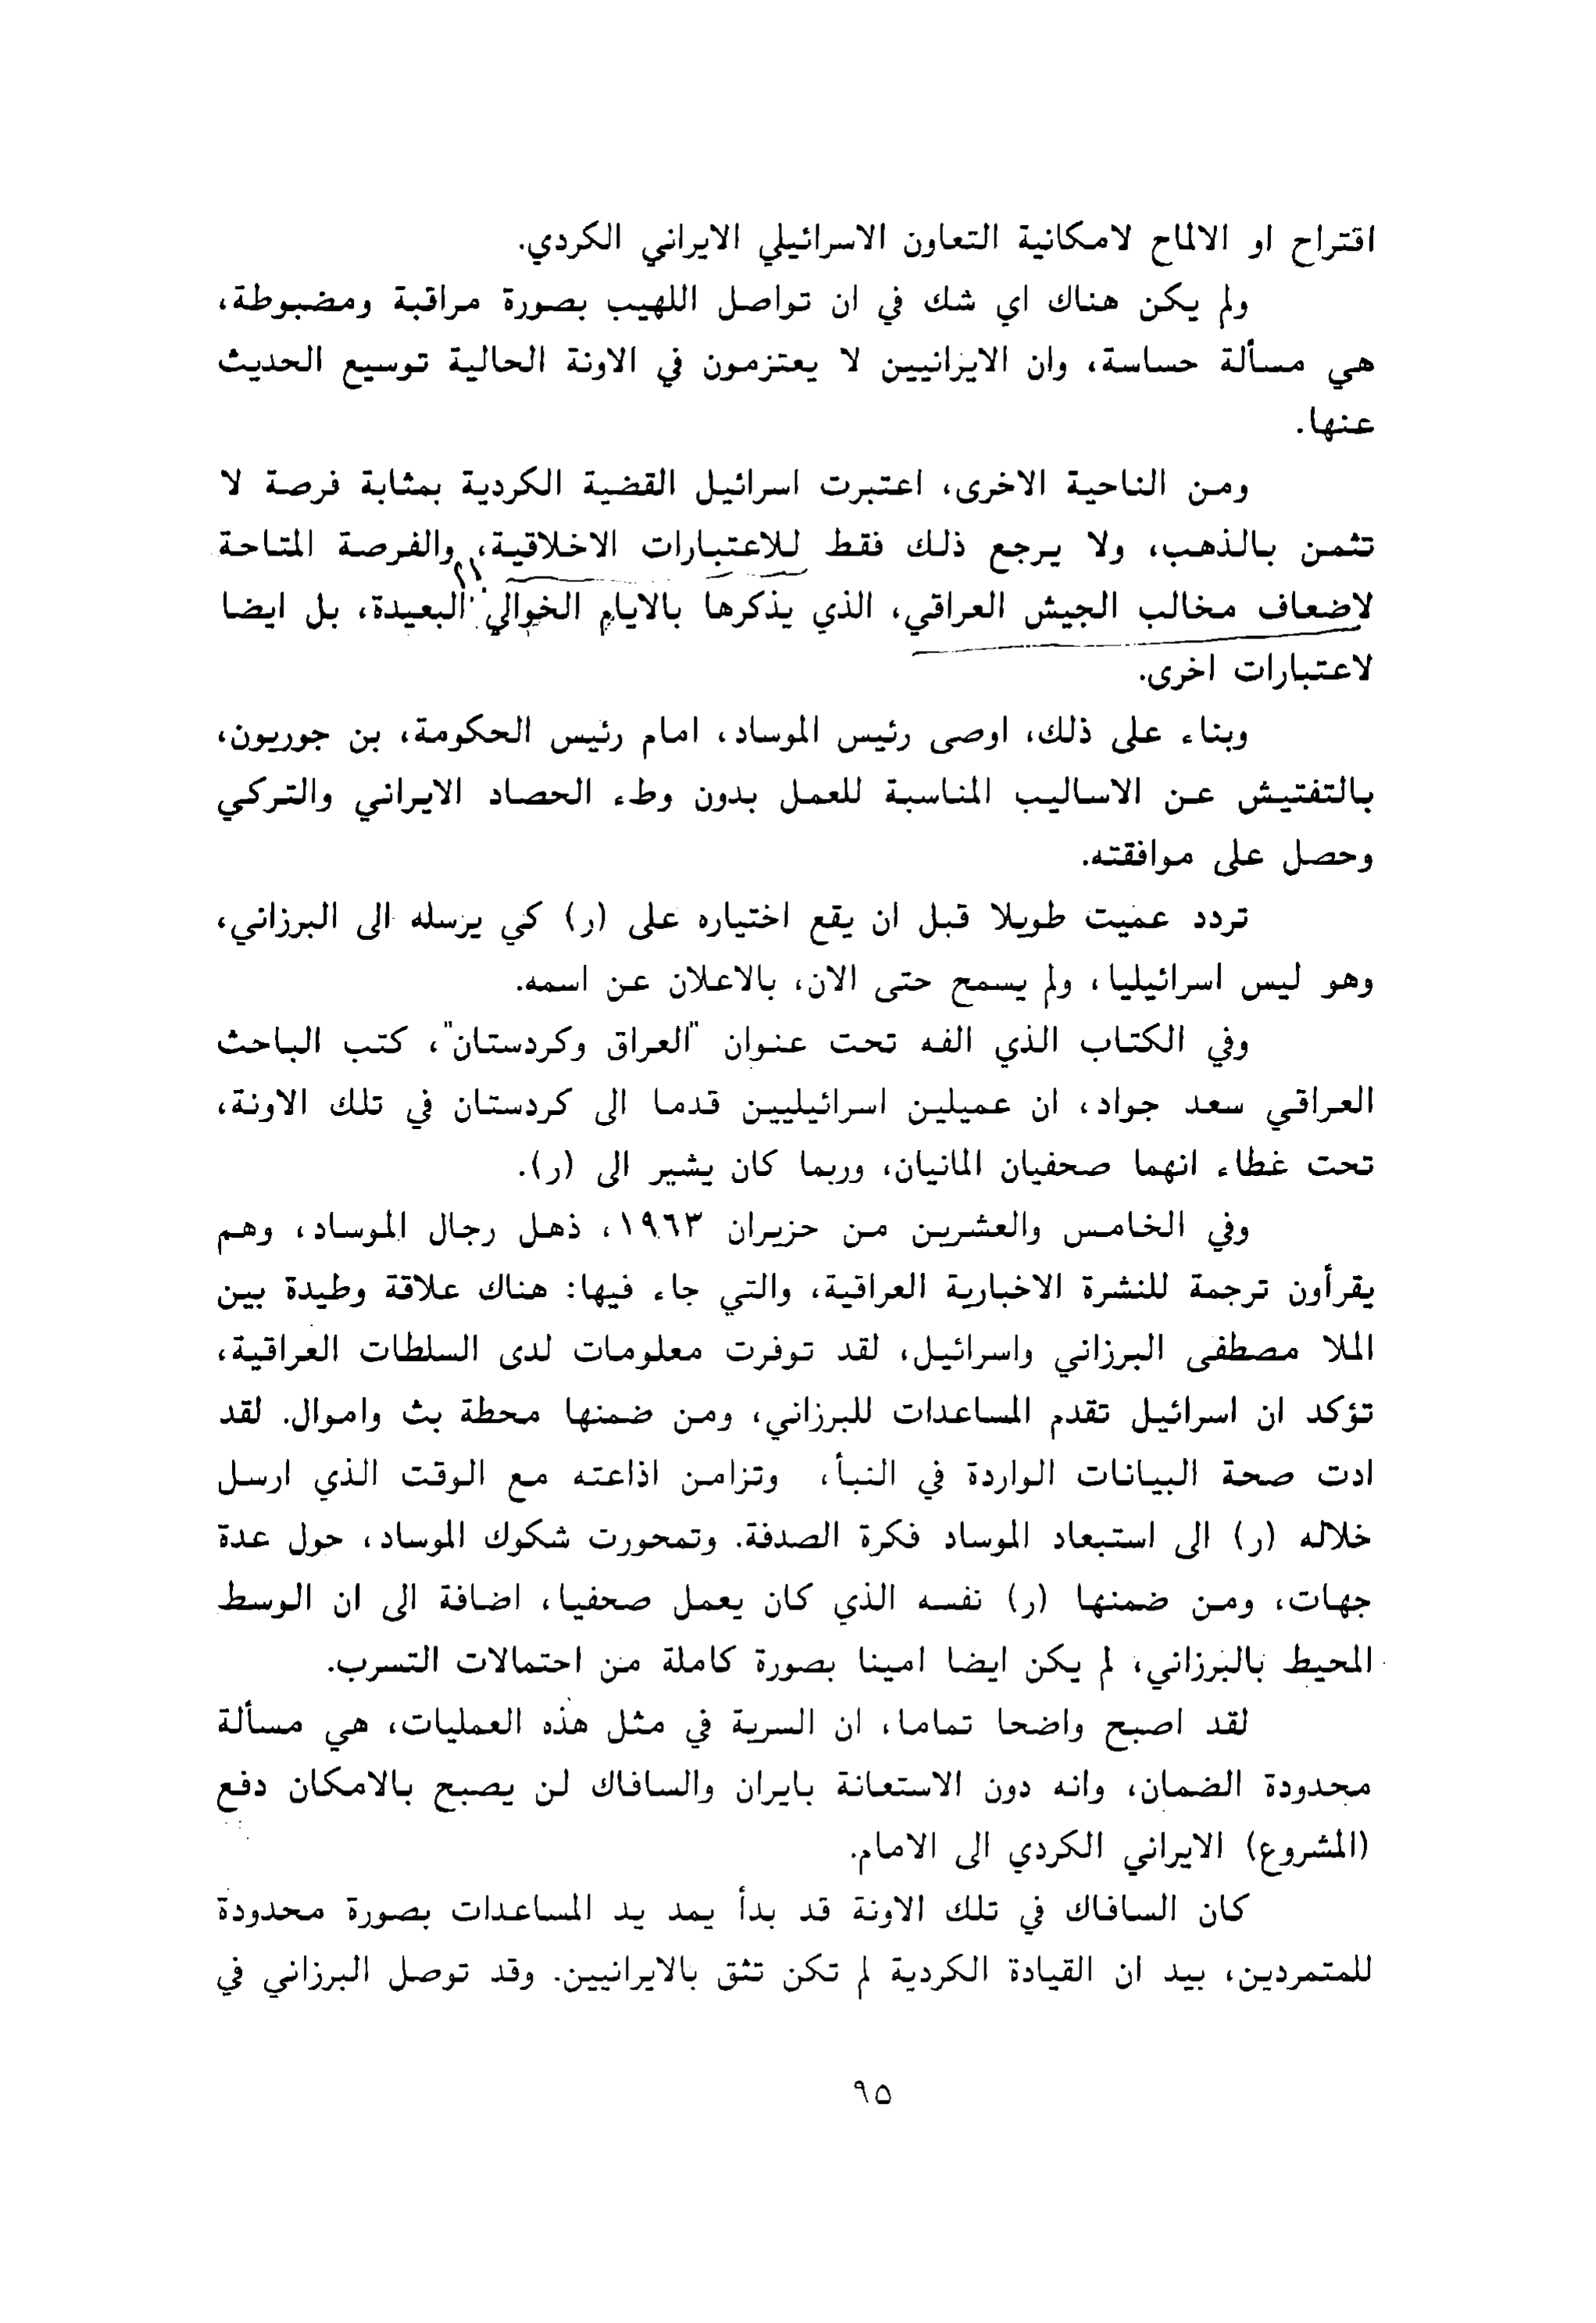 اقتراح او الالماح لامكانية التعاون الاسرائيلي الايراني الكردي.
ولم يكن هناك اي شك في ان تواصل اللهيب بصورة مراقبة ومضبوطة،
هي مسألة حساسة، وان الايرانيين لا يعتزمون في الاونة الحالية توسيع الحديث
عنها.
ومن الناحية الاخرى، اعتبرت اسرائيل القضية الكردية بمثابة فرصة لا
تثمن بالذهب، ولا يرجع ذلك فقط للاعتبارات الاخلاقية، والفرصة المتاحة
لاضعاف مخالب الجيش العراقي، الذي يذكرها بالايام الخوالي البعيدة، بل ايضا
لاعتبارات اخرى.
وبناء على ذلك، اوصى رئيس الموساد، امام رئيس الحكومة، بن جوريون،
بالتفتيش عن الاساليب المناسبة للعمل بدون وطء الحصاد الايراني والتركي
وحصل على موافقته.
تردد عميت طويلا قبل ان يقع اختياره على (ر) كي يرسله الى البرزاني،
وهو ليس اسرائيليا، ولم يسمح حتى الان، بالاعلان عن اسمه.
وفي الكتاب الذي الفه تحت عنوان "العراق وكردستان"، كتب الباحث
العراقي سعد جواد، ان عميلين اسرائيليين قدما الى كردستان في تلك الاونة،
تحت غطاء انهما صحفيان المانيان، وربما كان يشير الى (ر).
وفي الخامس والعشرين من حزيران ١٩٦٣، ذهل رجال الموساد، وهم
يقرأون ترجمة للنشرة الاخبارية العراقية، والتي جاء فيها: هناك علاقة وطيدة بين
الملا مصطفى البرزاني واسرائيل، لقد توفرت معلومات لدى السلطات العراقية،
تؤكد ان اسرائيل تقدم المساعدات للبرزاني، ومن ضمنها محطة بث واموال. لقد
ادت صحة البيانات الواردة في النبأ، وتزامن اذاعته مع الوقت الذي ارسل
خلاله (ر) الى استبعاد الموساد فكرة الصدفة. وتمحورت شكوك الموساد، حول عدة
جهات، ومن ضمنها (ر) نفسه الذي كان يعمل صحفيا، اضافة الى ان الوسط
المحيط بالبرزاني، لم يكن ايضا امينا بصورة كاملة من احتمالات التسرب.
لقد اصبح واضحا تماما، ان السرية في مثل هذه العمليات، هي مسألة
محدودة الضمان، وانه دون الاستعانة بايران والسافاك لن يصبح بالامكان دفع
(المشروع) الايراني الكردي الى الامام.
كان السافاك في تلك الاونة قد بدأ يمد يد المساعدات بصورة محدودة
للمتمردين، بيد ان القيادة الكردية لم تكن تثق بالايرانيين. وقد توصل البرزاني في
٩٥